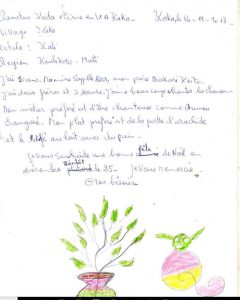 Danatou Keita élève en 4è A Koko Kokole 14-9-2017
Village : Koko
Cercle : Kati
Region Koulikoro - Mali
J'ai 10 ans, Ma mère s'appelle mon père Bakari Keita.
J'ai deux frères et 3 soeurs, J'aime beaucoup chanter la chanson
Mon métier préféré est d'être chanteuse comme Oumou
Sangaré. Mon plat préféré est de la pâte d'arachide
et le café au lait avec du pain.
Je vous souhaite une bonne fête de Noël en
décembre de 25. Je vous remercie.
Gros bisou